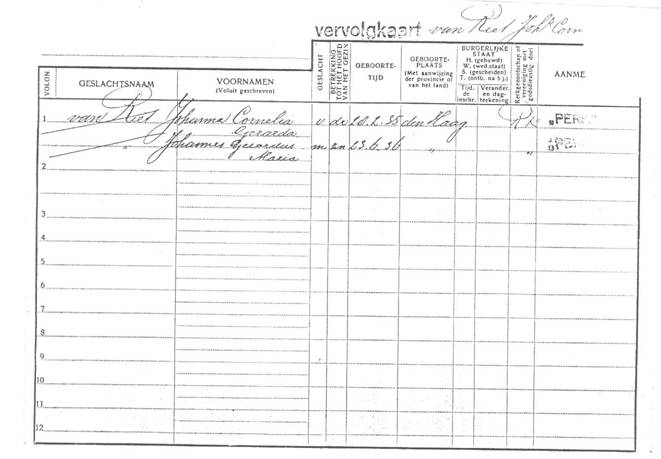 vervolgkaart van Riet Joh^s Corn
VOLGN.
GESLACHTSNAAM
VOORNAMEN
(Voluit geschreven)
GESLACHT
BETREKKING
TOT HET HOOFD
VAN HET GEZIN
GEBOORTE-
TIJD
GEBOORTE-
PLAATS
(Met aanwijzing
der provincie of
van het land)
BURGERLIJKE
STAAT
H. (gehuwd)
W. (wed.staat)
S. (gescheiden)
T. (ontb. na 5 j.)
Tijd.
de
Verander.
en dag-
teekening
Kerkgenootschap of
vereeniging met
godsdienstig doel
AANME
1 van Riet Johanna Cornelia v de 20.2.35 den Haag RK „PER
Gerarda
„ Johannes m zn 23.6.36 „ „
Maria
2
3
4
5
6
7
8
9
10
11
12